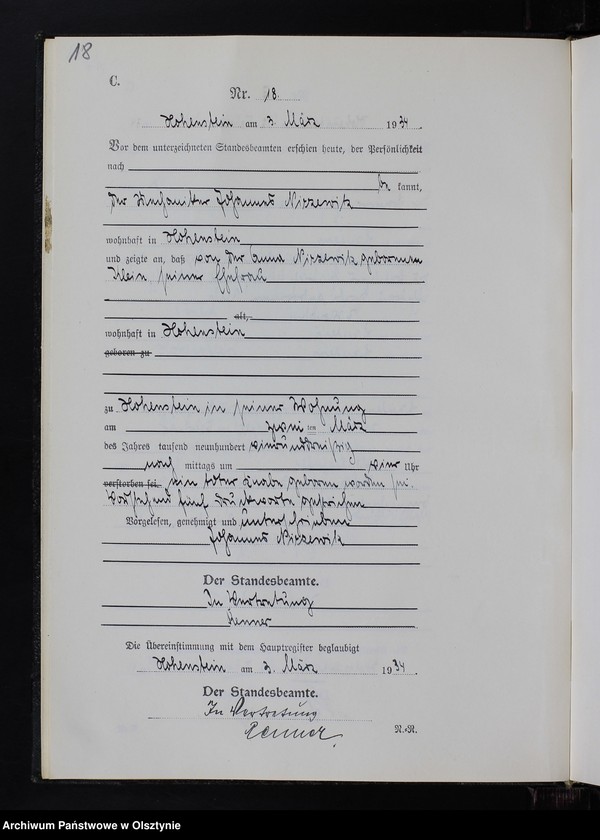 18
C.
Nr. 18.
Hohenstein am 3. März 1934.
Vor dem unterzeichneten Standesbeamten erschien heute, der Persönlichkeit
nach
be kannt,
der Johannes
wohnhaft in Hohenstein
und zeigte an, daß von der Anna geborenen
Klein seiner Ehefrau
alt,
wohnhaft in Hohenstein
geboren zu
zu Hohenstein in seiner Wohnung
am zwei ten März
des Jahres tausend neunhundert vierunddreißig
nach mittags um vier Uhr
verstorben sei. ein toter Knabe geboren worden sei.
Vorstehend fünf Druckworte gestrichen
Vorgelesen, genehmigt und unterschrieben
Johannes
Der Standesbeamte.
In Vertretung
Renner
Die Übereinstimmung mit dem Hauptregister beglaubigt
Hohenstein am 3. März 1934.
Der Standesbeamte.
In Vertretung
Renner.
N.-R.
Archiwum Państwowe w Olsztynie